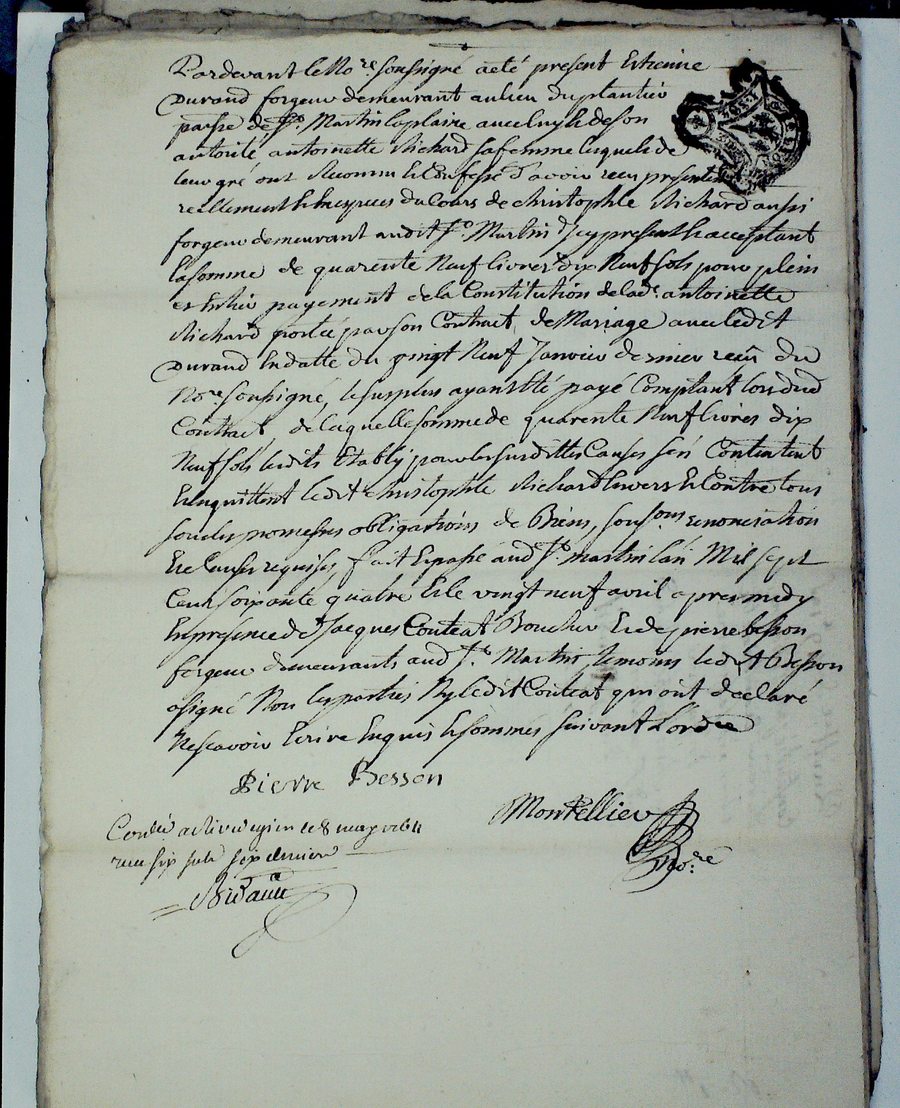 Pardevant le No.re soussigné a eté present Estienne
Durand forgeur demeurant au lieu du plantier
parsse de St. Martin la plaine avec luy & de son
autorité, antoinette Richard sa femme lesquels de
leur gré ont Reconnu & Confessé d'avoir reçu presentem
reellement & Espèces du Cours de christophle Richard aussi
forgeur demeurant audit St. Martin Icy present & acceptant
la somme de quarente Neuf livres dix Neuf sols pour plein
et Entier payement de la Constitution de lad.e antoinette
Richard portée par son Contract de Mariage avec ledit
Durand En datte du vingt Neuf Janvier dernier reçu du
No.re soussigné, le surplus ayant Eté payé Comptant lors dud
Contrat de laquelle somme de quarente Neuf livres dix
Neuf sols lesdits Etably pour les susdittes Causes s'en Contentent
Enquittent ledit christophle Richard Envers & Contre tous
sous les promesses obligations de Biens, sousons renonciation
Et Clauses requises, fait & passé aud St. martin l'an Mil sept
Cent soixante quatre & le vingt neuf avril apres midy
En presence de Jacques Couteat Boucher & de pierre besson
forgeur demeurants aud St. Martin temoins ledit Besson
a signé Non les parties Ny ledit Couteat qui ont declaré
Ne scavoir Ecrire Enquis & sommés suivant l'ordre
Pierre Besson
Montellier
No.re
Con.lé a Rivedegier le 8 may 1764
reçu six sols six deniers